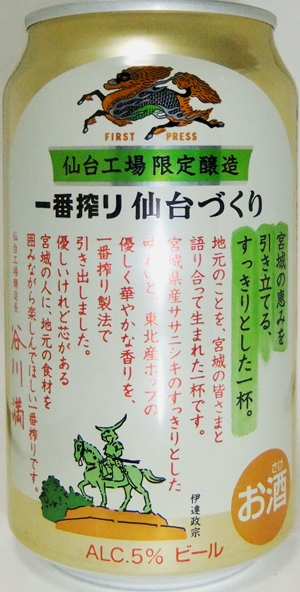 FIRST PRESS
仙台工場限定醸造
一番搾り 仙台づくり
宮城の恵みを
引き立てる、
すっきりとした一杯。
地元のことを、宮城の皆さまと
語り合って生まれた一杯です。
宮城県産ササニシキのすっきりとした
味わいと、東北産ホップの
優しく華やかな香りを、
一番搾り製法で
引き出しました。
優しいけれど芯がある
宮城の人に、地元の食材を
囲みながら楽しんでほしい一番搾りです。
仙台工場醸造長 谷川 満
伊達政宗
さけ
お酒
ALC.5% ビール